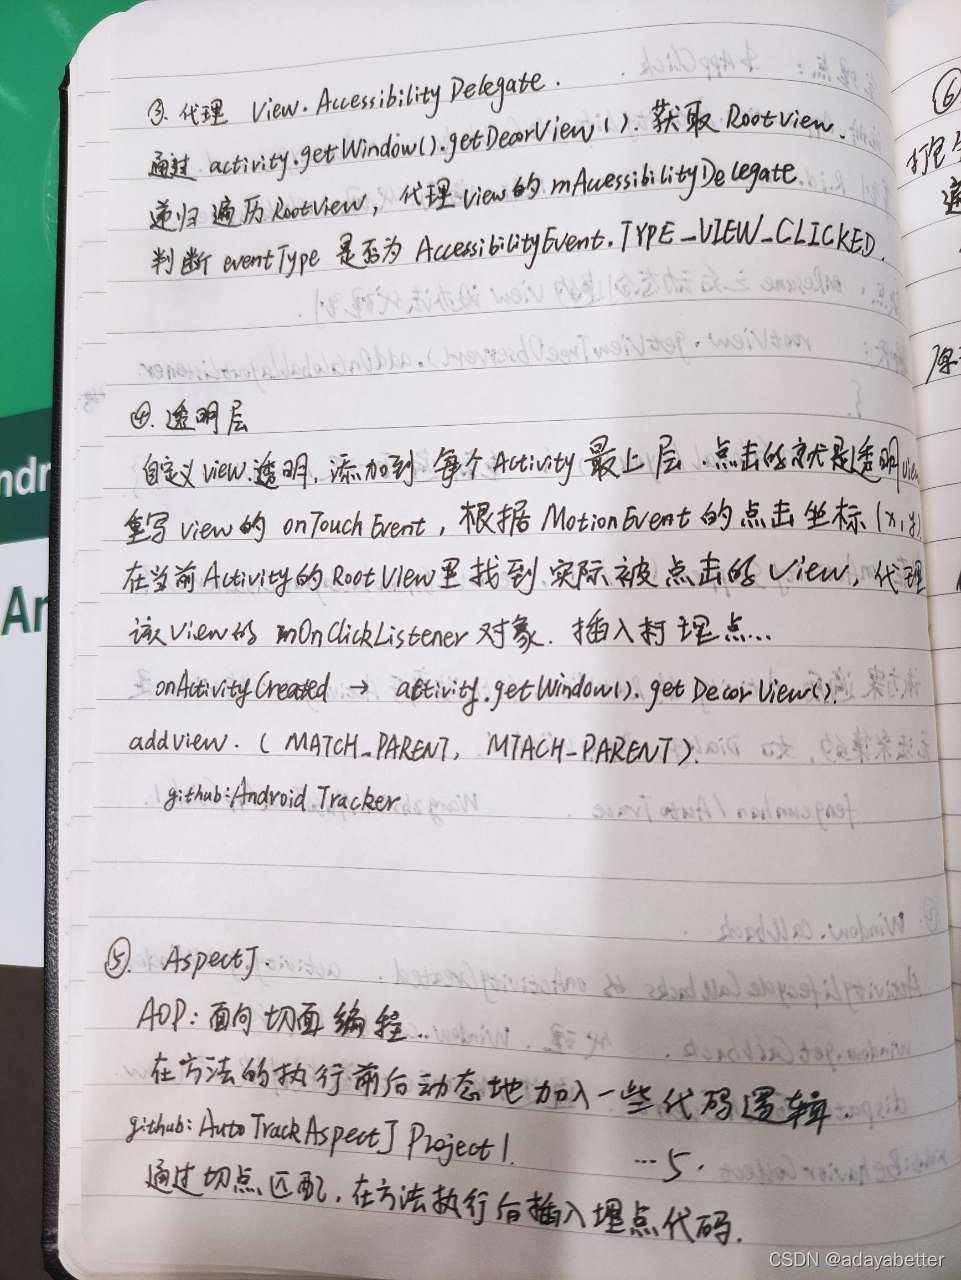 ③. 代理 View.AccessibilityDelegate.
通过 activity.getWindow().getDecorView(). 获取 RootView.
递归遍历RootView, 代理view的mAccessibilityDelegate
判断 eventType 是否为 AccessibilityEvent.TYPE_VIEW_CLICKED.
④. 透明层
自定义view.透明, 添加到每个Activity最上层.点击的就是透明view
重写view的 onTouchEvent, 根据MotionEvent的点击坐标(x,y)
在当前Activity的RootView里找到实际被点击的View, 代理
该View的 mOnClickListener对象. 插入 埋点...
onActivityCreated → activity.getWindow().getDecorView().
addview. ( MATCH_PARENT, MTACH_PARENT).
github:Android Tracker
⑤. AspectJ.
AOP:面向切面编程.
在方法的执行前后动态地加入一些代码逻辑.
github: AutoTrackAspectJProject1. ...5.
通过切点匹配,在方法执行后插入埋点代码.
⑥
原
ndr
Ar
CSDN @adayabetter